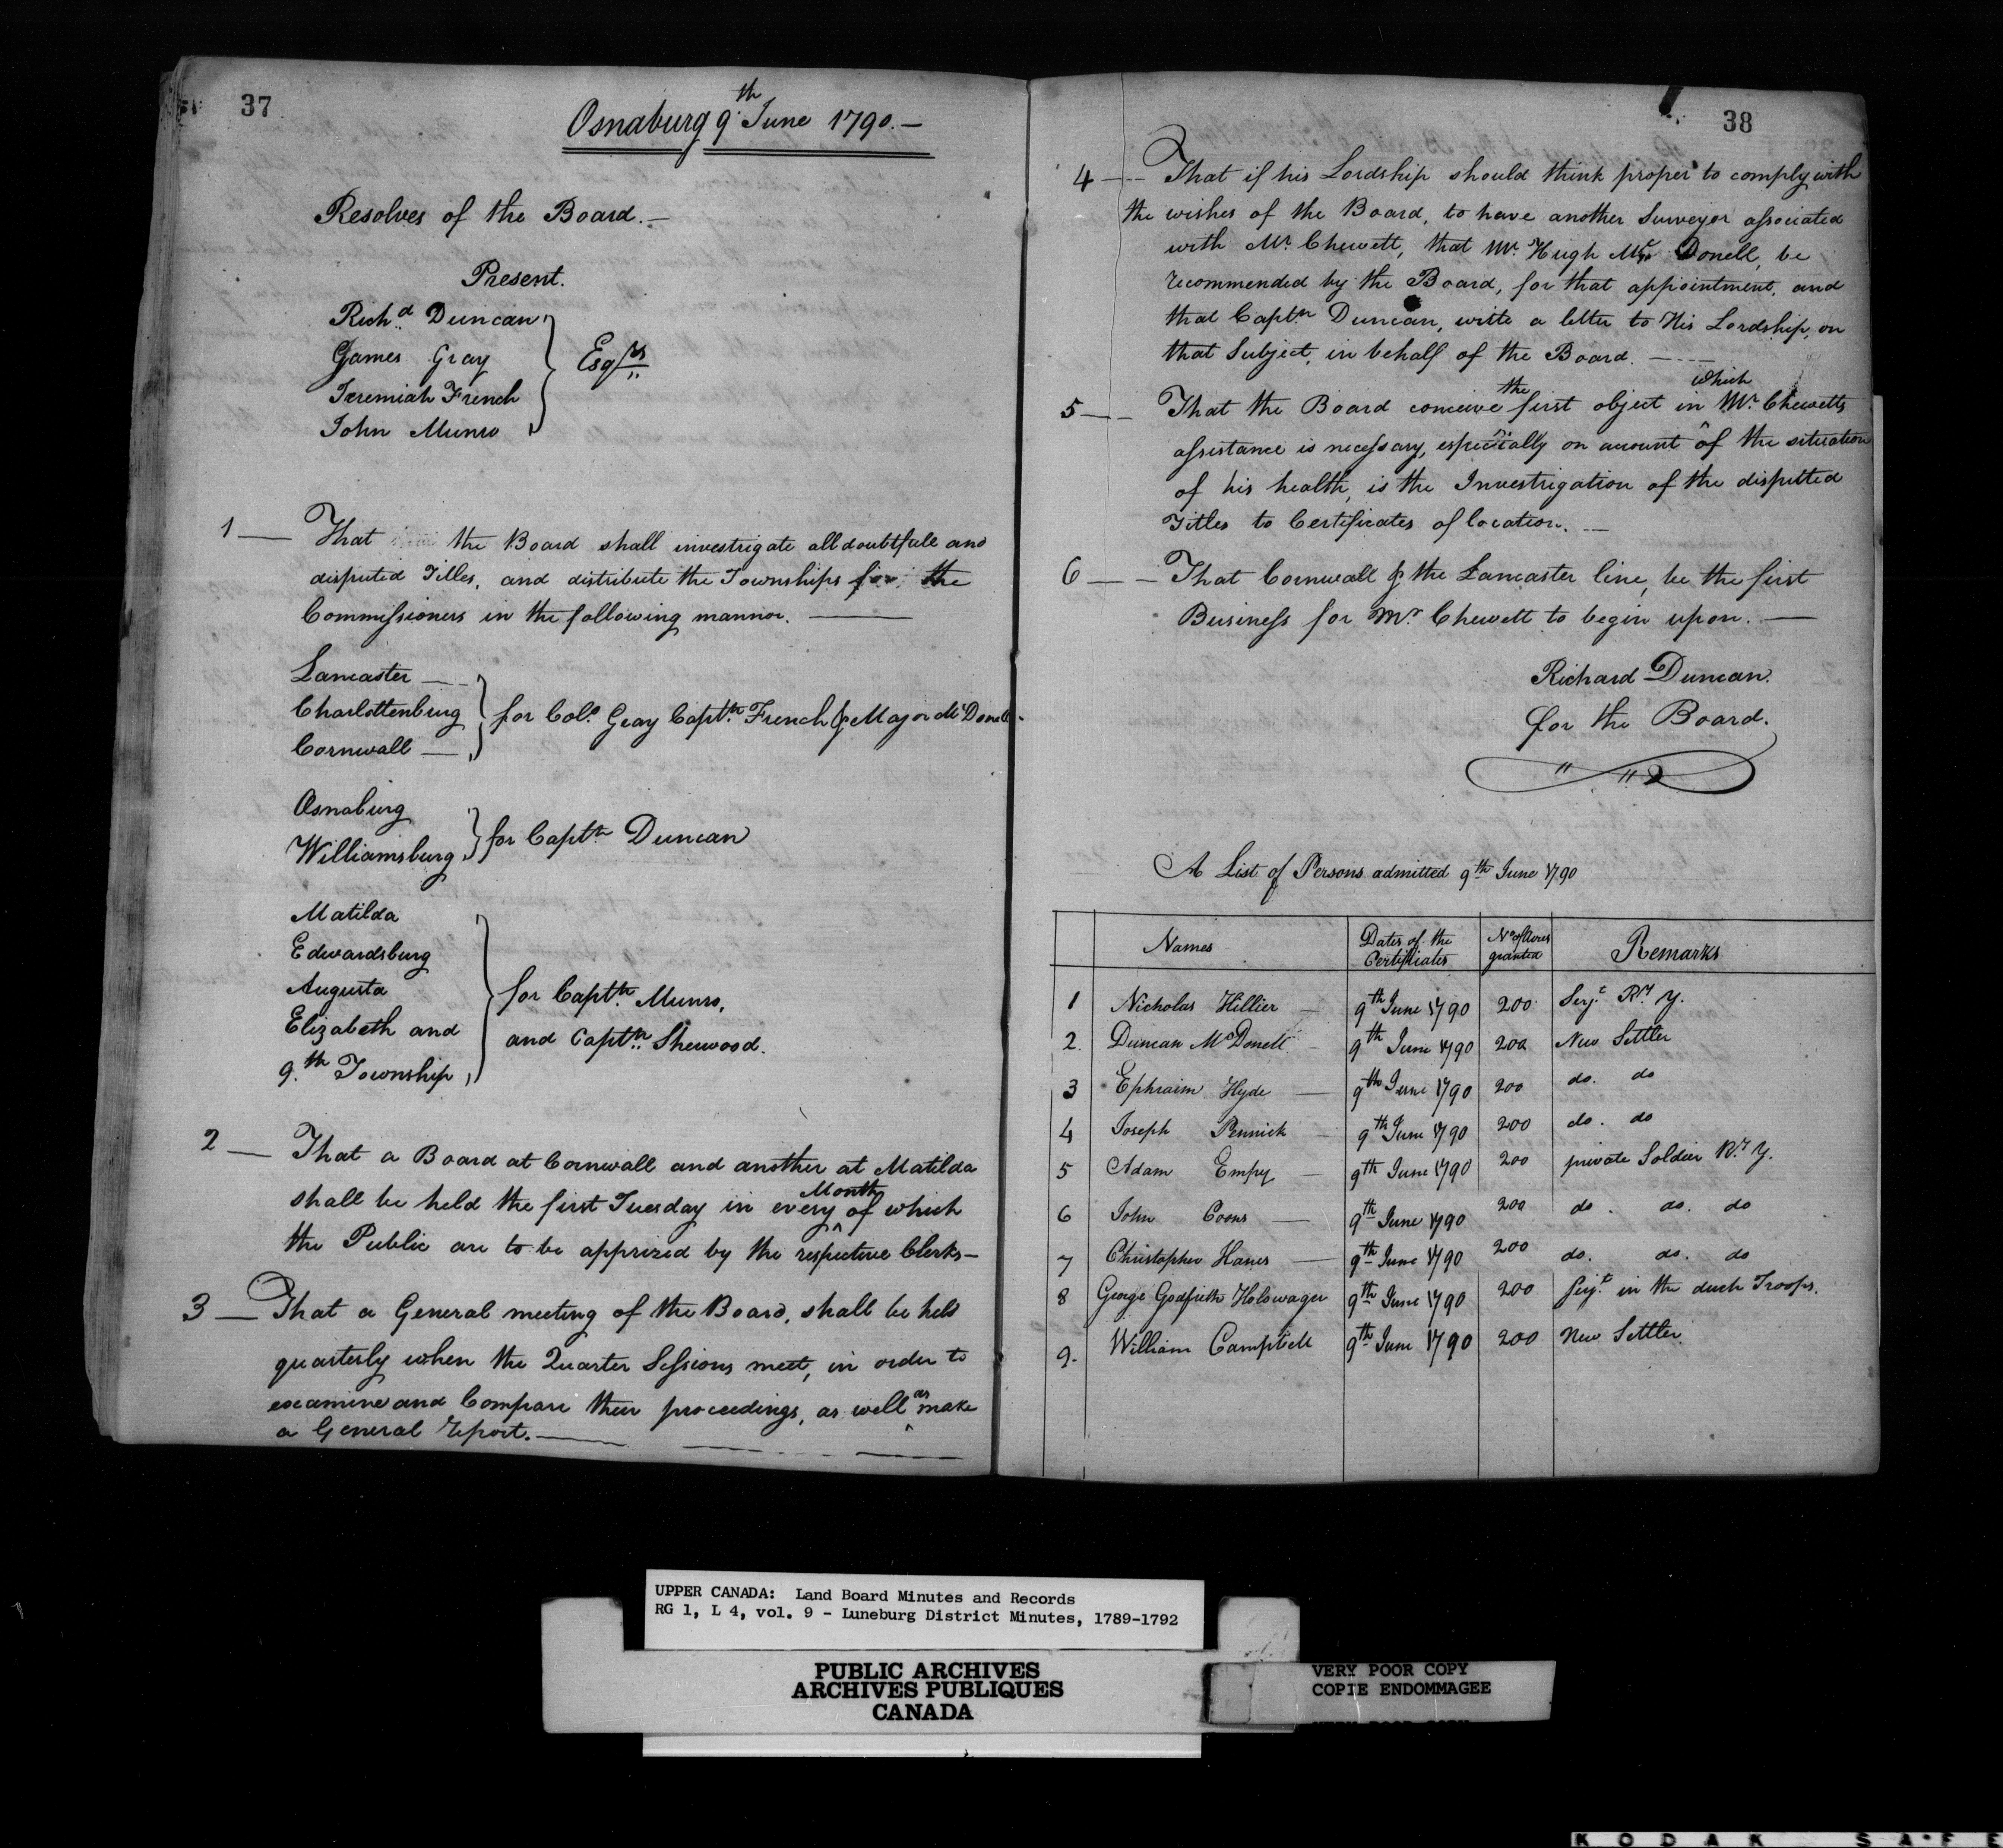 37
Osnaburg 9th June 1790.—
Resolves of the Board.—
Present.
Richd. Duncan
James Gray
Jeremiah French
John Munro
Esqrs
1— That the Board shall investigate all doubtfull and
disputed Titles, and distribute the Townships for the
Commissioners in the following mannor.—
Lancaster—
Charlottenburg
Cornwall—
for Colo. Gray Captn. French & Major McDonell.
Osnaburg
Williamsburg
for Captn. Duncan
Matilda
Edwardsburg
Augusta
Elizabeth and
9th. Township
for Captn. Munro,
and Captn. Sherwood.
2— That a Board at Cornwall and another at Matilda
shall be held the first Tuesday in every ^Month of which
the Public are to be apprized by the respective Clerks—
3— That a General meeting of the Board, shall be held
quarterly when the Quarter Sessions meet, in order to
examine and Compare their proceedings, as well ^as make
a General report.—
38
4— That if his Lordship should think proper to comply with
the wishes of the Board, to have another Surveyor associated
with Mr. Chewett, that Mr. Hugh Mc Donell, be
recommended by the Board, for that appointment, and
that Captn Duncan, write a letter to His Lordship, on
that Subject, in behalf of the Board.—
5— That the Board conceive the first object in which Mr. Chewetts
assistance is necessary, especially on account ^ of the situation
of his health, is the Investrigation of the disputted
Titles to Certificates of location.—
6— That Cornwall & the Lancaster line, be the first
Business for Mr. Chewett to begin upon.—
Richard Duncan.
for the Board.
A List of Persons admitted 9th June 1790
Names Dates of the Certificates No of Acres granted Remarks
1 Nicholas Hillier — 9th June 1790 200 Serjt. R. Y.
2. Duncan McDonell — 9th June 1790 200 New Settler
3 Ephraim Hyde — 9th June 1790 200 do. do
4 Joseph Pennick — 9th June 1790 200 do. do
5 Adam Empy — 9th June 1790 200 private Soldier R. Y.
6 John Coons — 9th June 1790 200 do. do. do
7 Christopher Hanes — 9th June 1790 200 do. do. do
8 George Godfrieth Holswager 9th June 1790 200 Serjt. in the duch Troops.
9. William Campbell 9th June 1790 200 New Settler
UPPER CANADA: Land Board Minutes and Records
RG 1, L 4, vol. 9 - Luneburg District Minutes, 1789-1792
PUBLIC ARCHIVES
ARCHIVES PUBLIQUES
CANADA
VERY POOR COPY
COPIE ENDOMMAGEE
KODAK SAFE